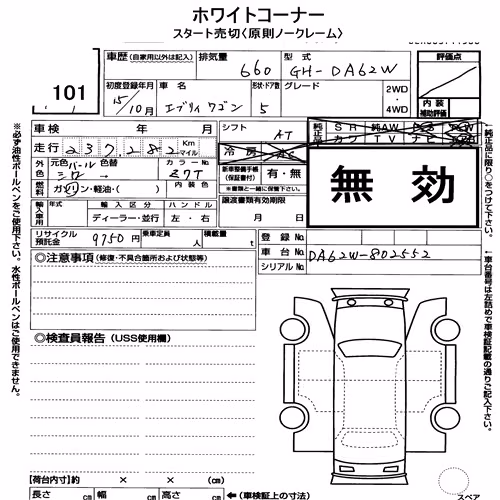 ホワイトコーナー
スタート売切〈原則ノークレーム〉
101
車歴 (自家用以外は記入) 排気量 660 型式 GH-DA62W
評価点
初度登録年月 15/10月 車名 エブリィ ワゴン 形状・ドア数 5 グレード 2WD・4WD
内装補助評価
車検 年 月 シフト AT 純正品に○ SR 純AW
走行 237,282 Km マイル 冷房 カワ TV ナビ
外色 元色 パール 色替 シロー カラー No. 27T 新車整備手帳(保証書付) 有・無
※書類と一緒に保管下さい。
燃料 ガソリン・軽油・( ) 内装色 譲渡書類有効期限
無効
輸入車用 年式 輸入区分 ディーラー・並行 ハンドル 左・右 月 日
リサイクル預託金 9750円 乗車定員 人 積載量 t 登録No.
車台No. DA62W-802552
シリアルNo.
◎注意事項 (修復・不具合箇所および状態等)
◎検査員報告 (USS使用欄)
【荷台内寸】約 × × (cm)
長さ cm 幅 cm 高さ cm ←(車検証上の寸法)
スペア
※必ず油性ボールペンをご使用下さい。水性ボールペンはご使用できません。
↑純正品に限り○をつけて下さい。
←車台番号は左詰めで車検証記載の通りご記入下さい。